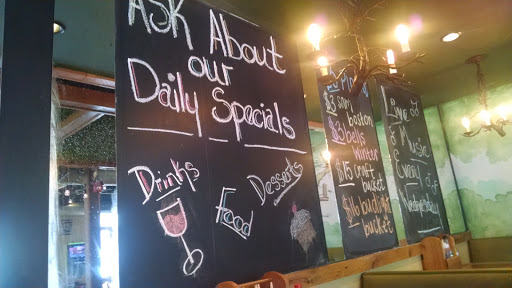 ASK About
our
Daily Specials
Drinks
Food
Desserts
$3
boston
$3 bells
winter
$15 craft
bucket
$16 bud
bucket
Live
Music
Every
Wednesday